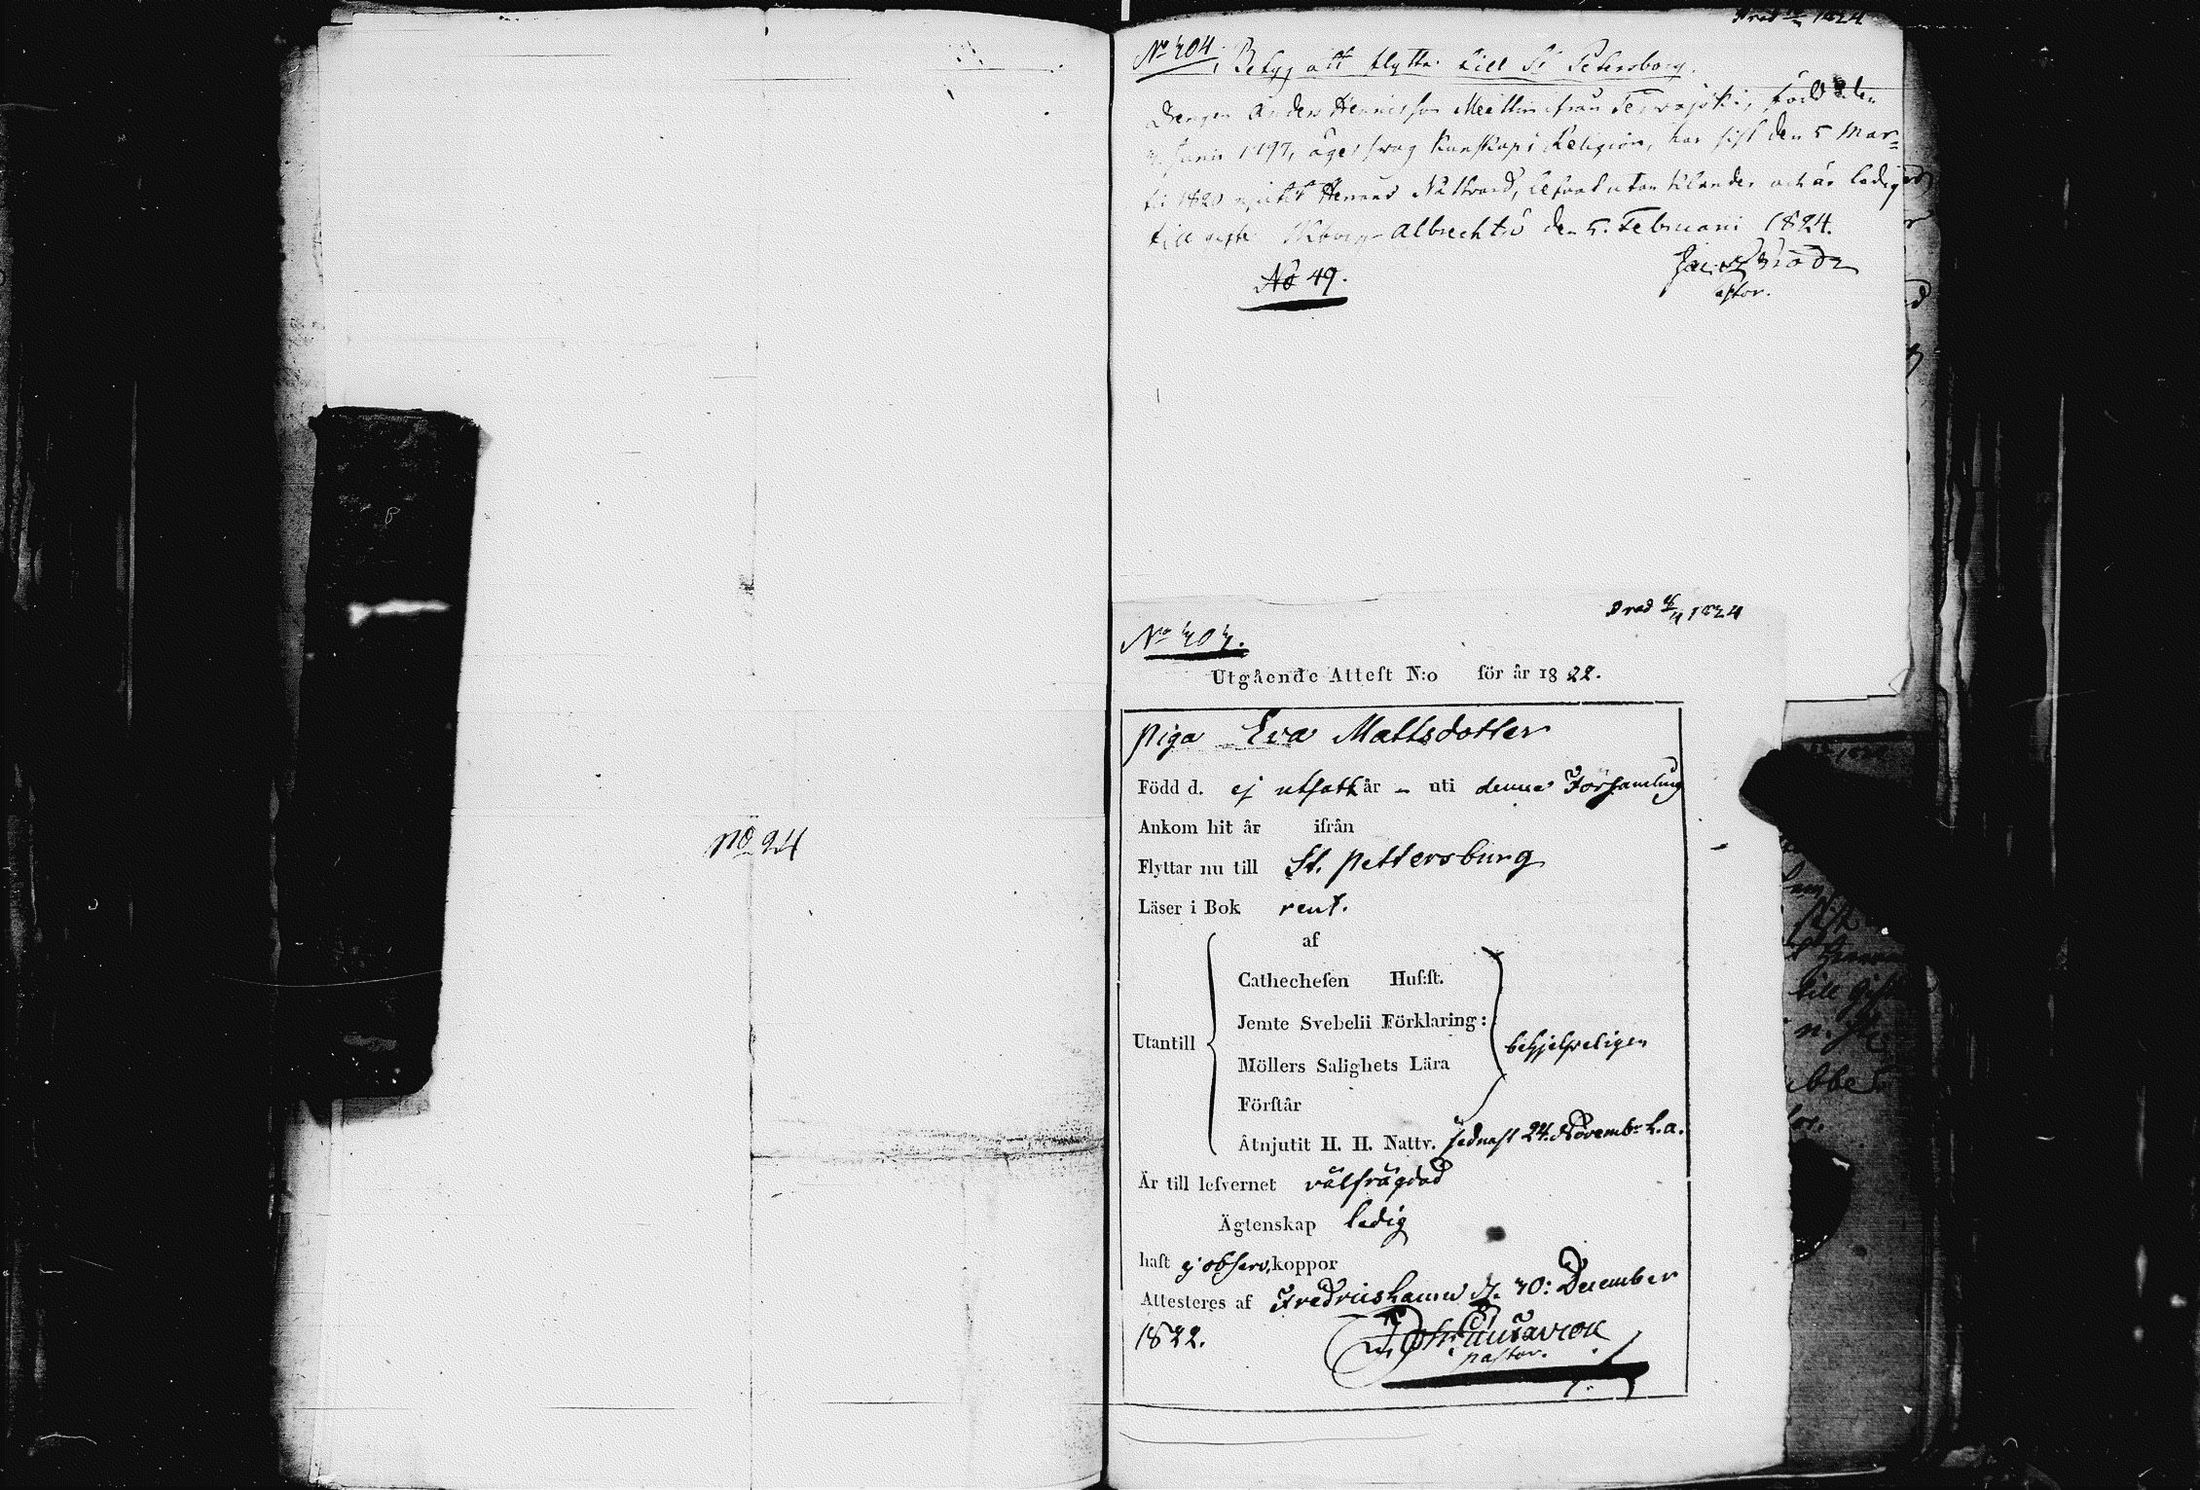 No 24
1824
No 404.
Betyg att flytta till St Petersborg.
Drengen Anders Henricsson ifrån född den
Junii 1797, äger svag kunskap i Religion, har sist den 5 Mar=
tii 1820 Herrans Nattvard, lefvat utan klander och är ledig
till Albrechtsö den 5. Februarii 1824.
No 49.
No 407.
1824
Utgående Attest N:o för år 1822.
Piga Eva Mattsdotter
Född d. ej utsatt år – uti denna Församling
Ankom hit år ifrån
Flyttar nu till St. Pettersburg
Läser i Bok rent.
af
Cathechesen Hus:st.
Jemte Svebelii Förklaring:
Utantill
behjelpeligen
Möllers Salighets Lära
Förstår
Åtnjutit H. H. Nattv. sednast 24. Novemb. h.a.
Är till lefvernet välfrägdad
Ägtenskap ledig
haft ej observ. koppor
Attesteres af Fredricshamn d. 30: December
1822.
Pastor.